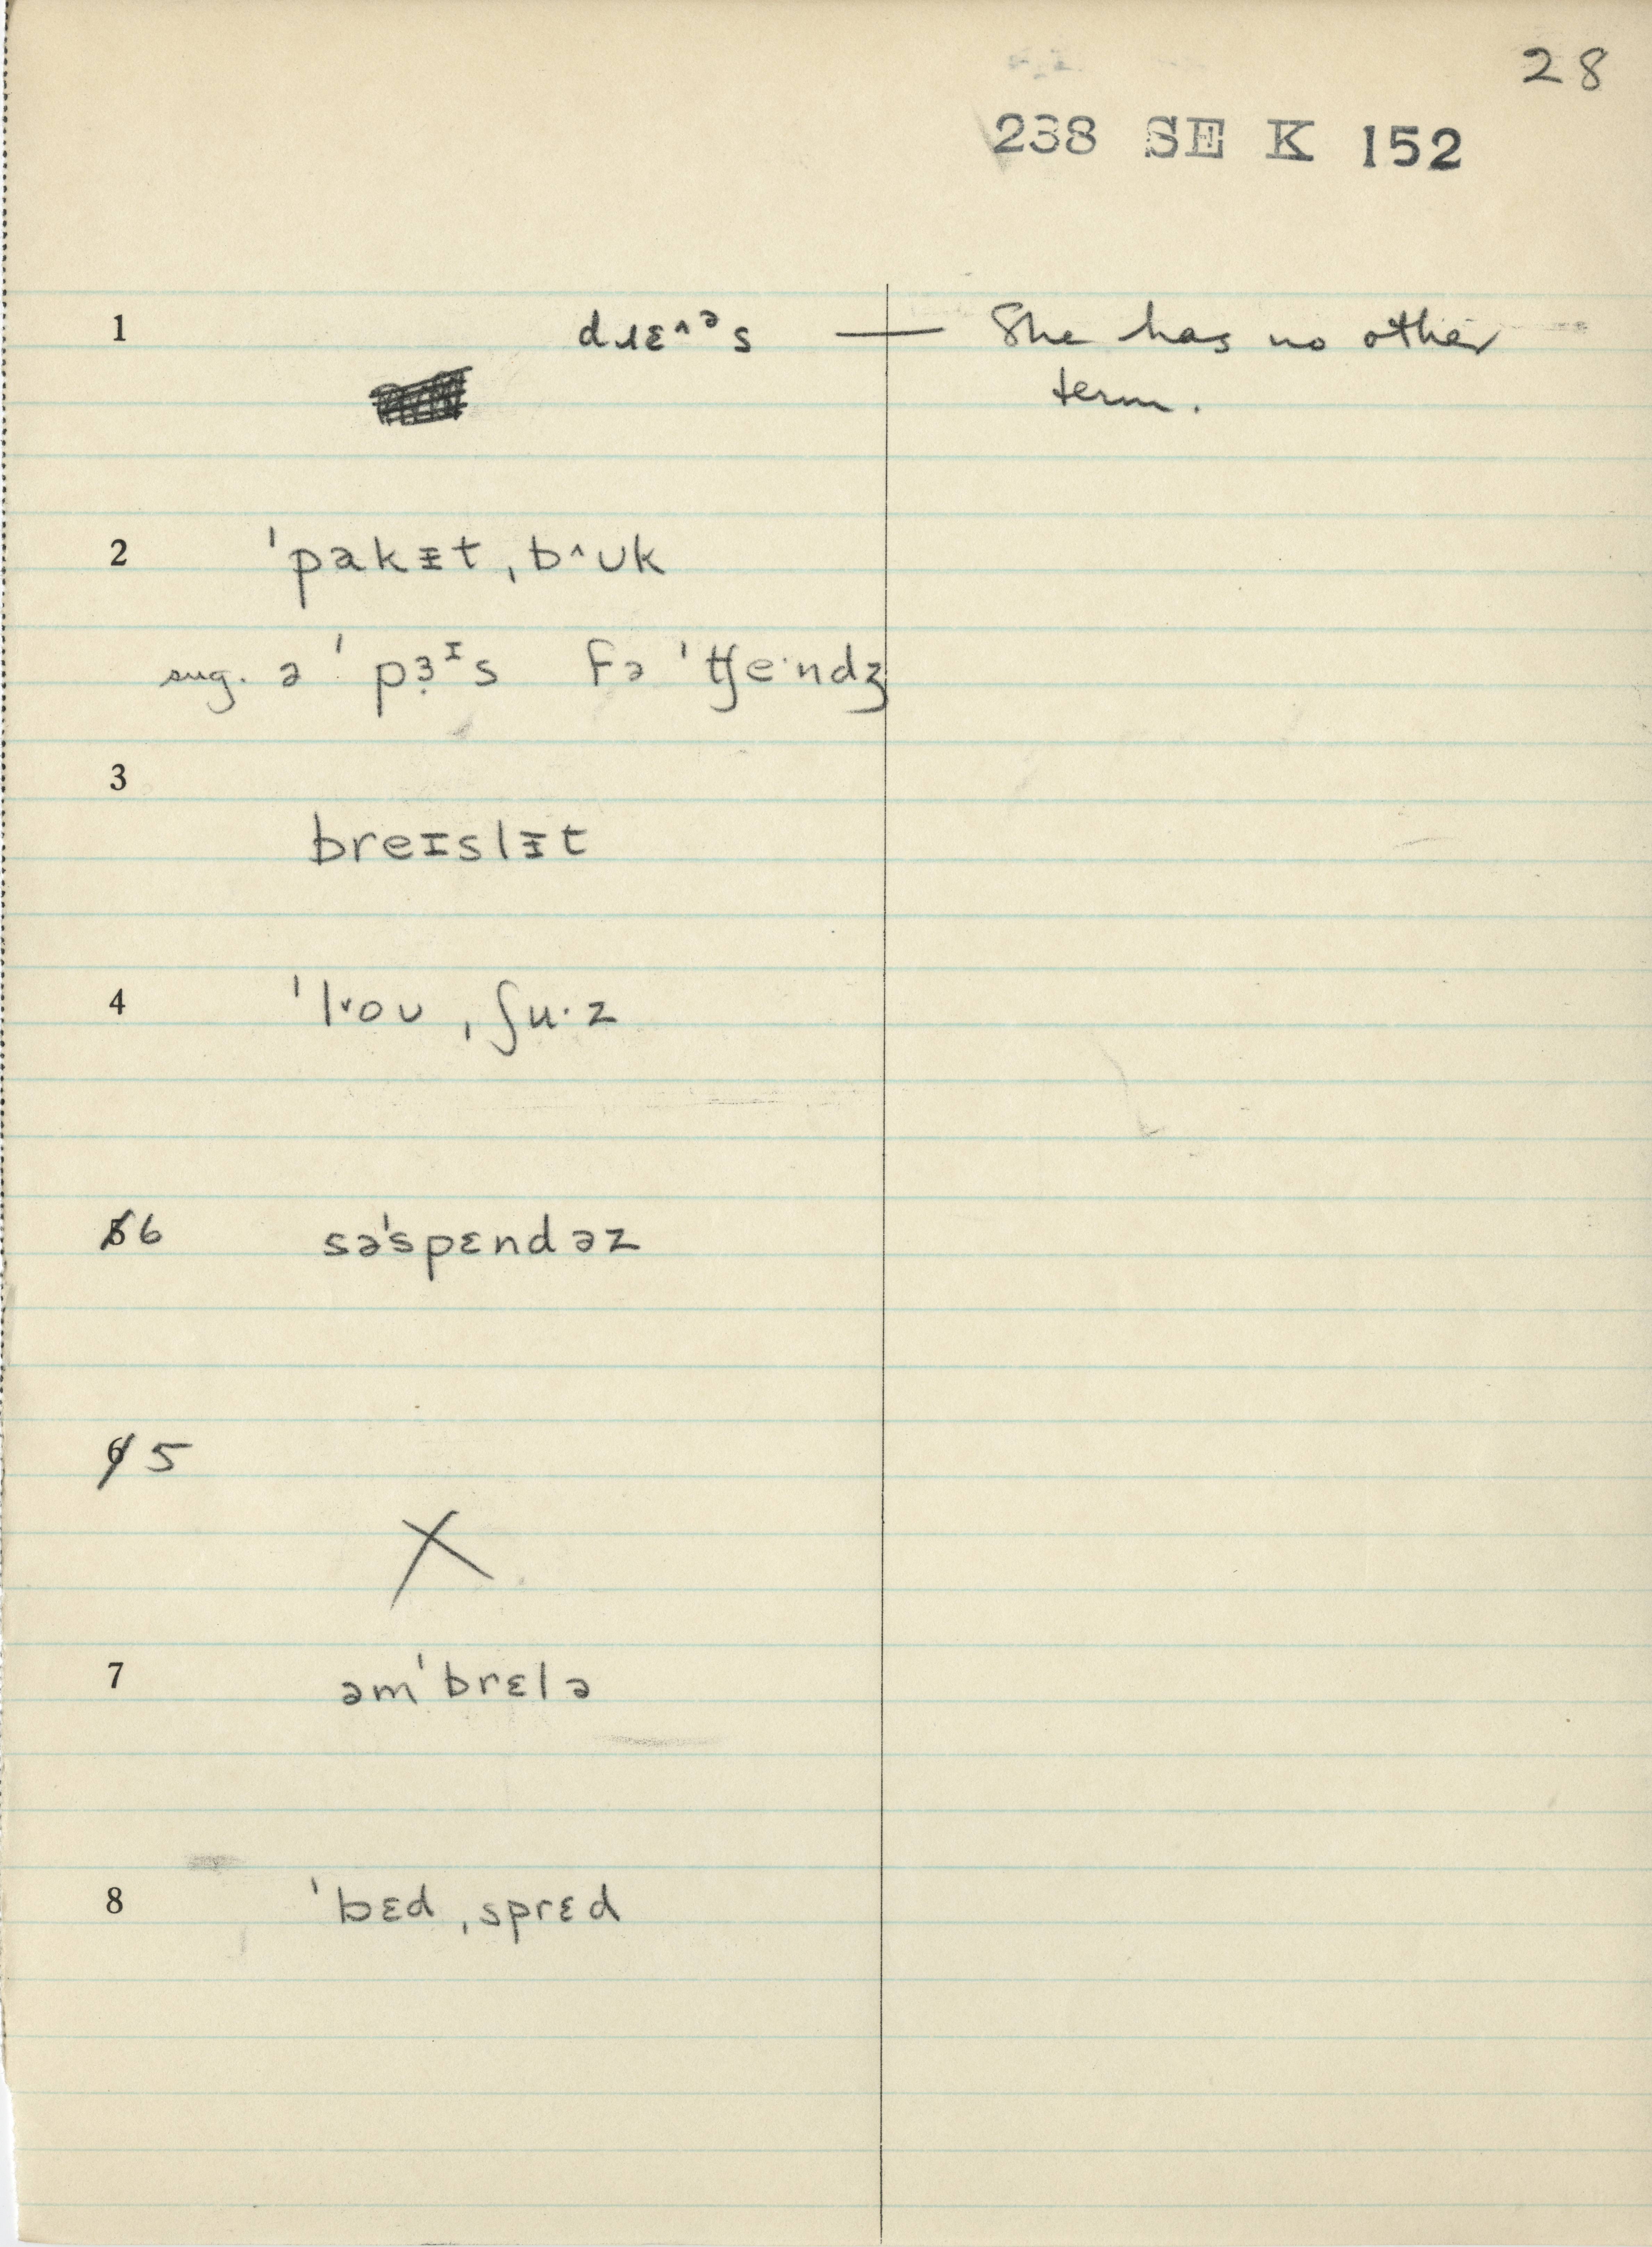 28
238 SE K 152
1 dɹɛ^ᵊs — She has no other
term.
2 ˈpakᵻt ˌb^ʊk
sug. ə ˈpɜ̣ᶦs fə ˈʧe·ndʒ
3
breɪslᵻt
4 ˈlᵛoʊ ˌʃu·z
5 6 səˈspɛndəz
6 5
X
7 əmˈbrɛlə
8 ˈbɛd ˌsprɛd